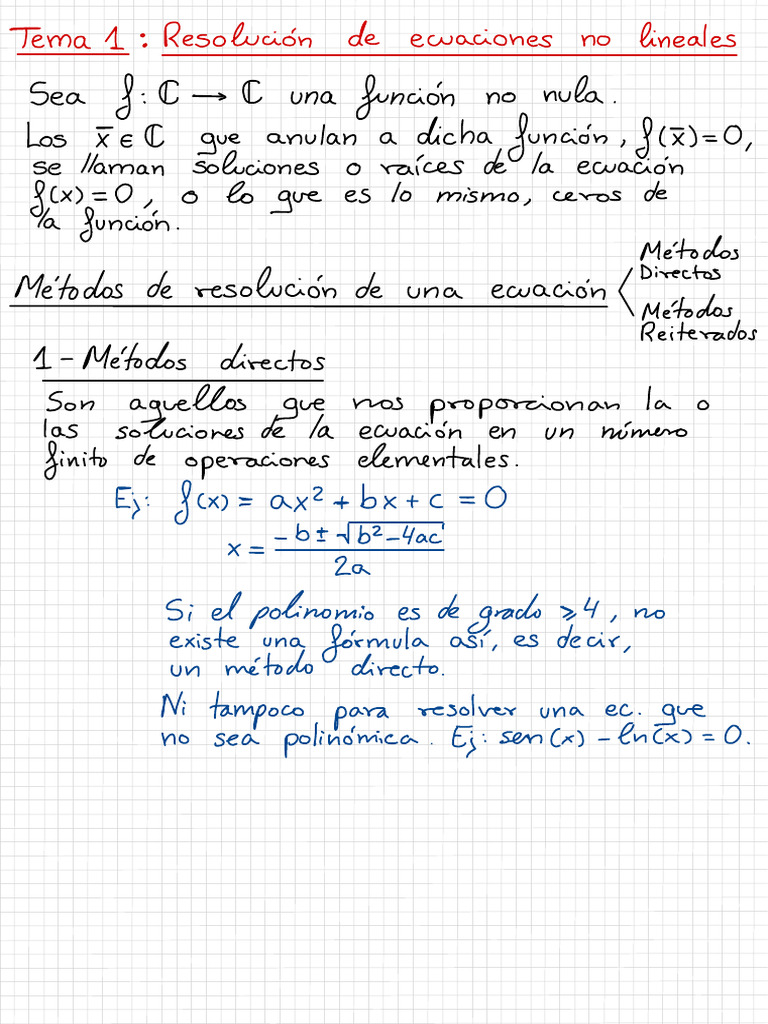 Tema 1 : Resolución de ecuaciones no lineales
Sea f: ℂ → ℂ una función no nula.
Los x̄ ∈ ℂ que anulan a dicha función, f(x̄)=0,
se llaman soluciones o raíces de la ecuación
f(x)=0, o lo que es lo mismo, ceros de
la función.
Métodos de resolución de una ecuación < Métodos Directos
Métodos Reiterados
1 - Métodos directos
Son aquellos que nos proporcionan la o
las soluciones de la ecuación en un número
finito de operaciones elementales.
Ej: f(x) = ax² + bx + c = 0
x = (-b ± √(b²-4ac)) / 2a
Si el polinomio es de grado ⩾4, no
existe una fórmula así, es decir,
un método directo.
Ni tampoco para resolver una ec. que
no sea polinómica. Ej: sen(x) - ln(x) = 0.